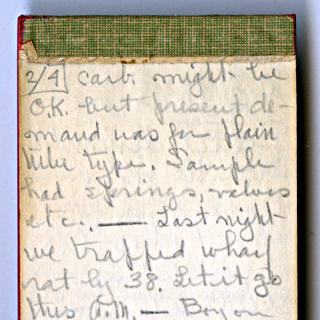 2/4 carb. might be
O.K. but present de-
mand was for plain
tube type. Sample
had springs, valves
etc.. — Last night
we trapped wharf
rat by 38. Let it go
this A.M. — Boy on